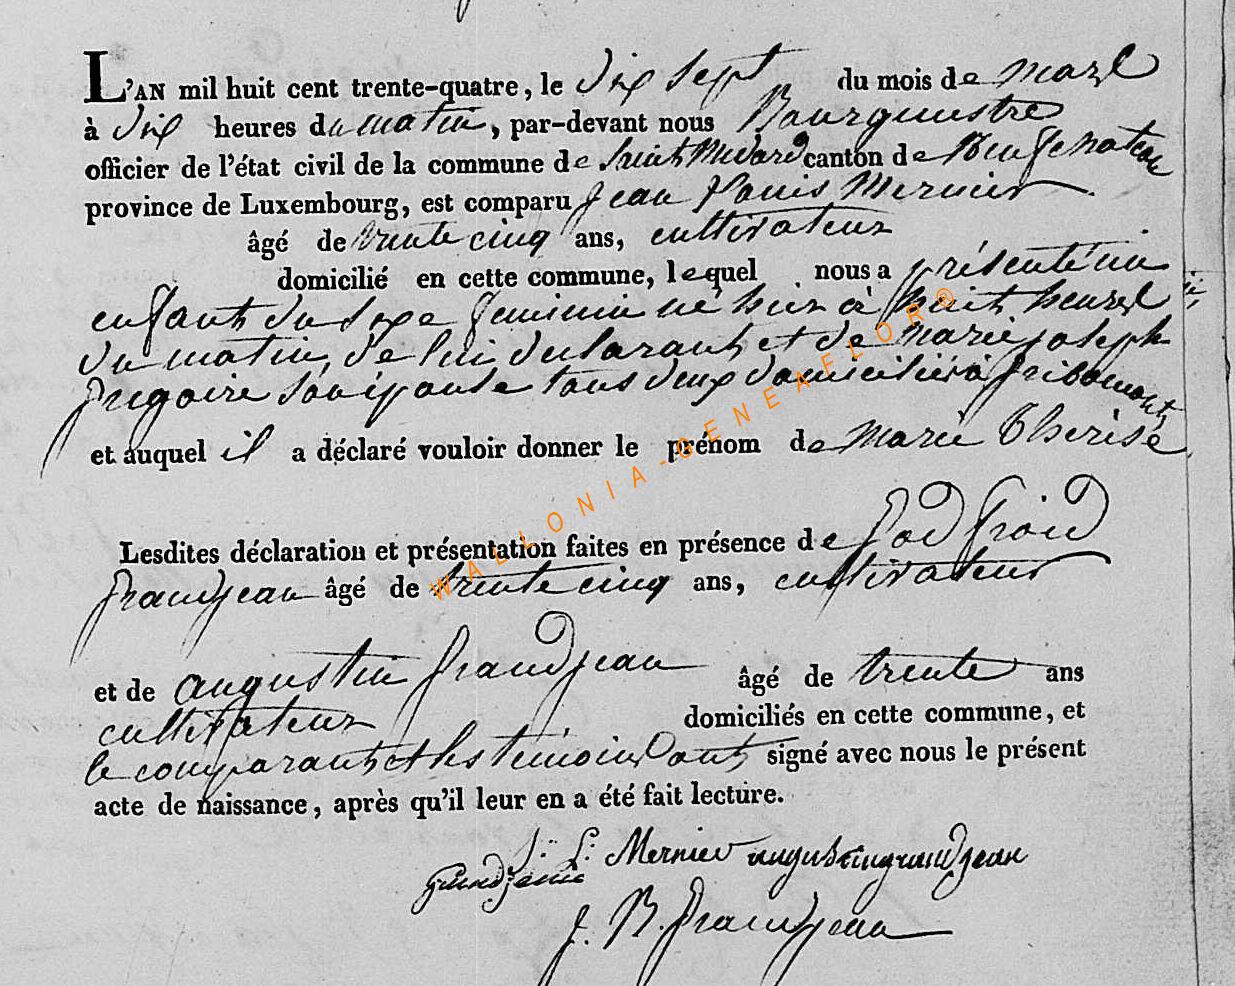 L'AN mil huit cent trente-quatre, le dix sept du mois de mars
à dix heures du matin, par-devant nous Bourgumstre
officier de l'état civil de la commune de Saint Medard canton de Neufchateau
province de Luxembourg, est comparu Jean Louis Mernier
âgé de trente cinq ans, cultivateur
domicilié en cette commune, lequel nous a présenté un
enfant du sexe feminin né hier à huit heures
du matin, de lui declarant et de marie joseph
gregoire son épouse tous deux domiciliés à gribomont
et auquel il a déclaré vouloir donner le prénom de marie thérèse
Lesdites déclaration et présentation faites en présence de God froid
grandjean âgé de trente cinq ans, cultivateur
et de augustin grandjean âgé de trente ans
cultivateur domiciliés en cette commune, et
le comparant et les temoins ont signé avec nous le présent
acte de naissance, après qu'il leur en a été fait lecture.
J: L: Mernier augustingrandjean
grandjean
J. B. grandjean
WALLONIA-GENEAFLOR®